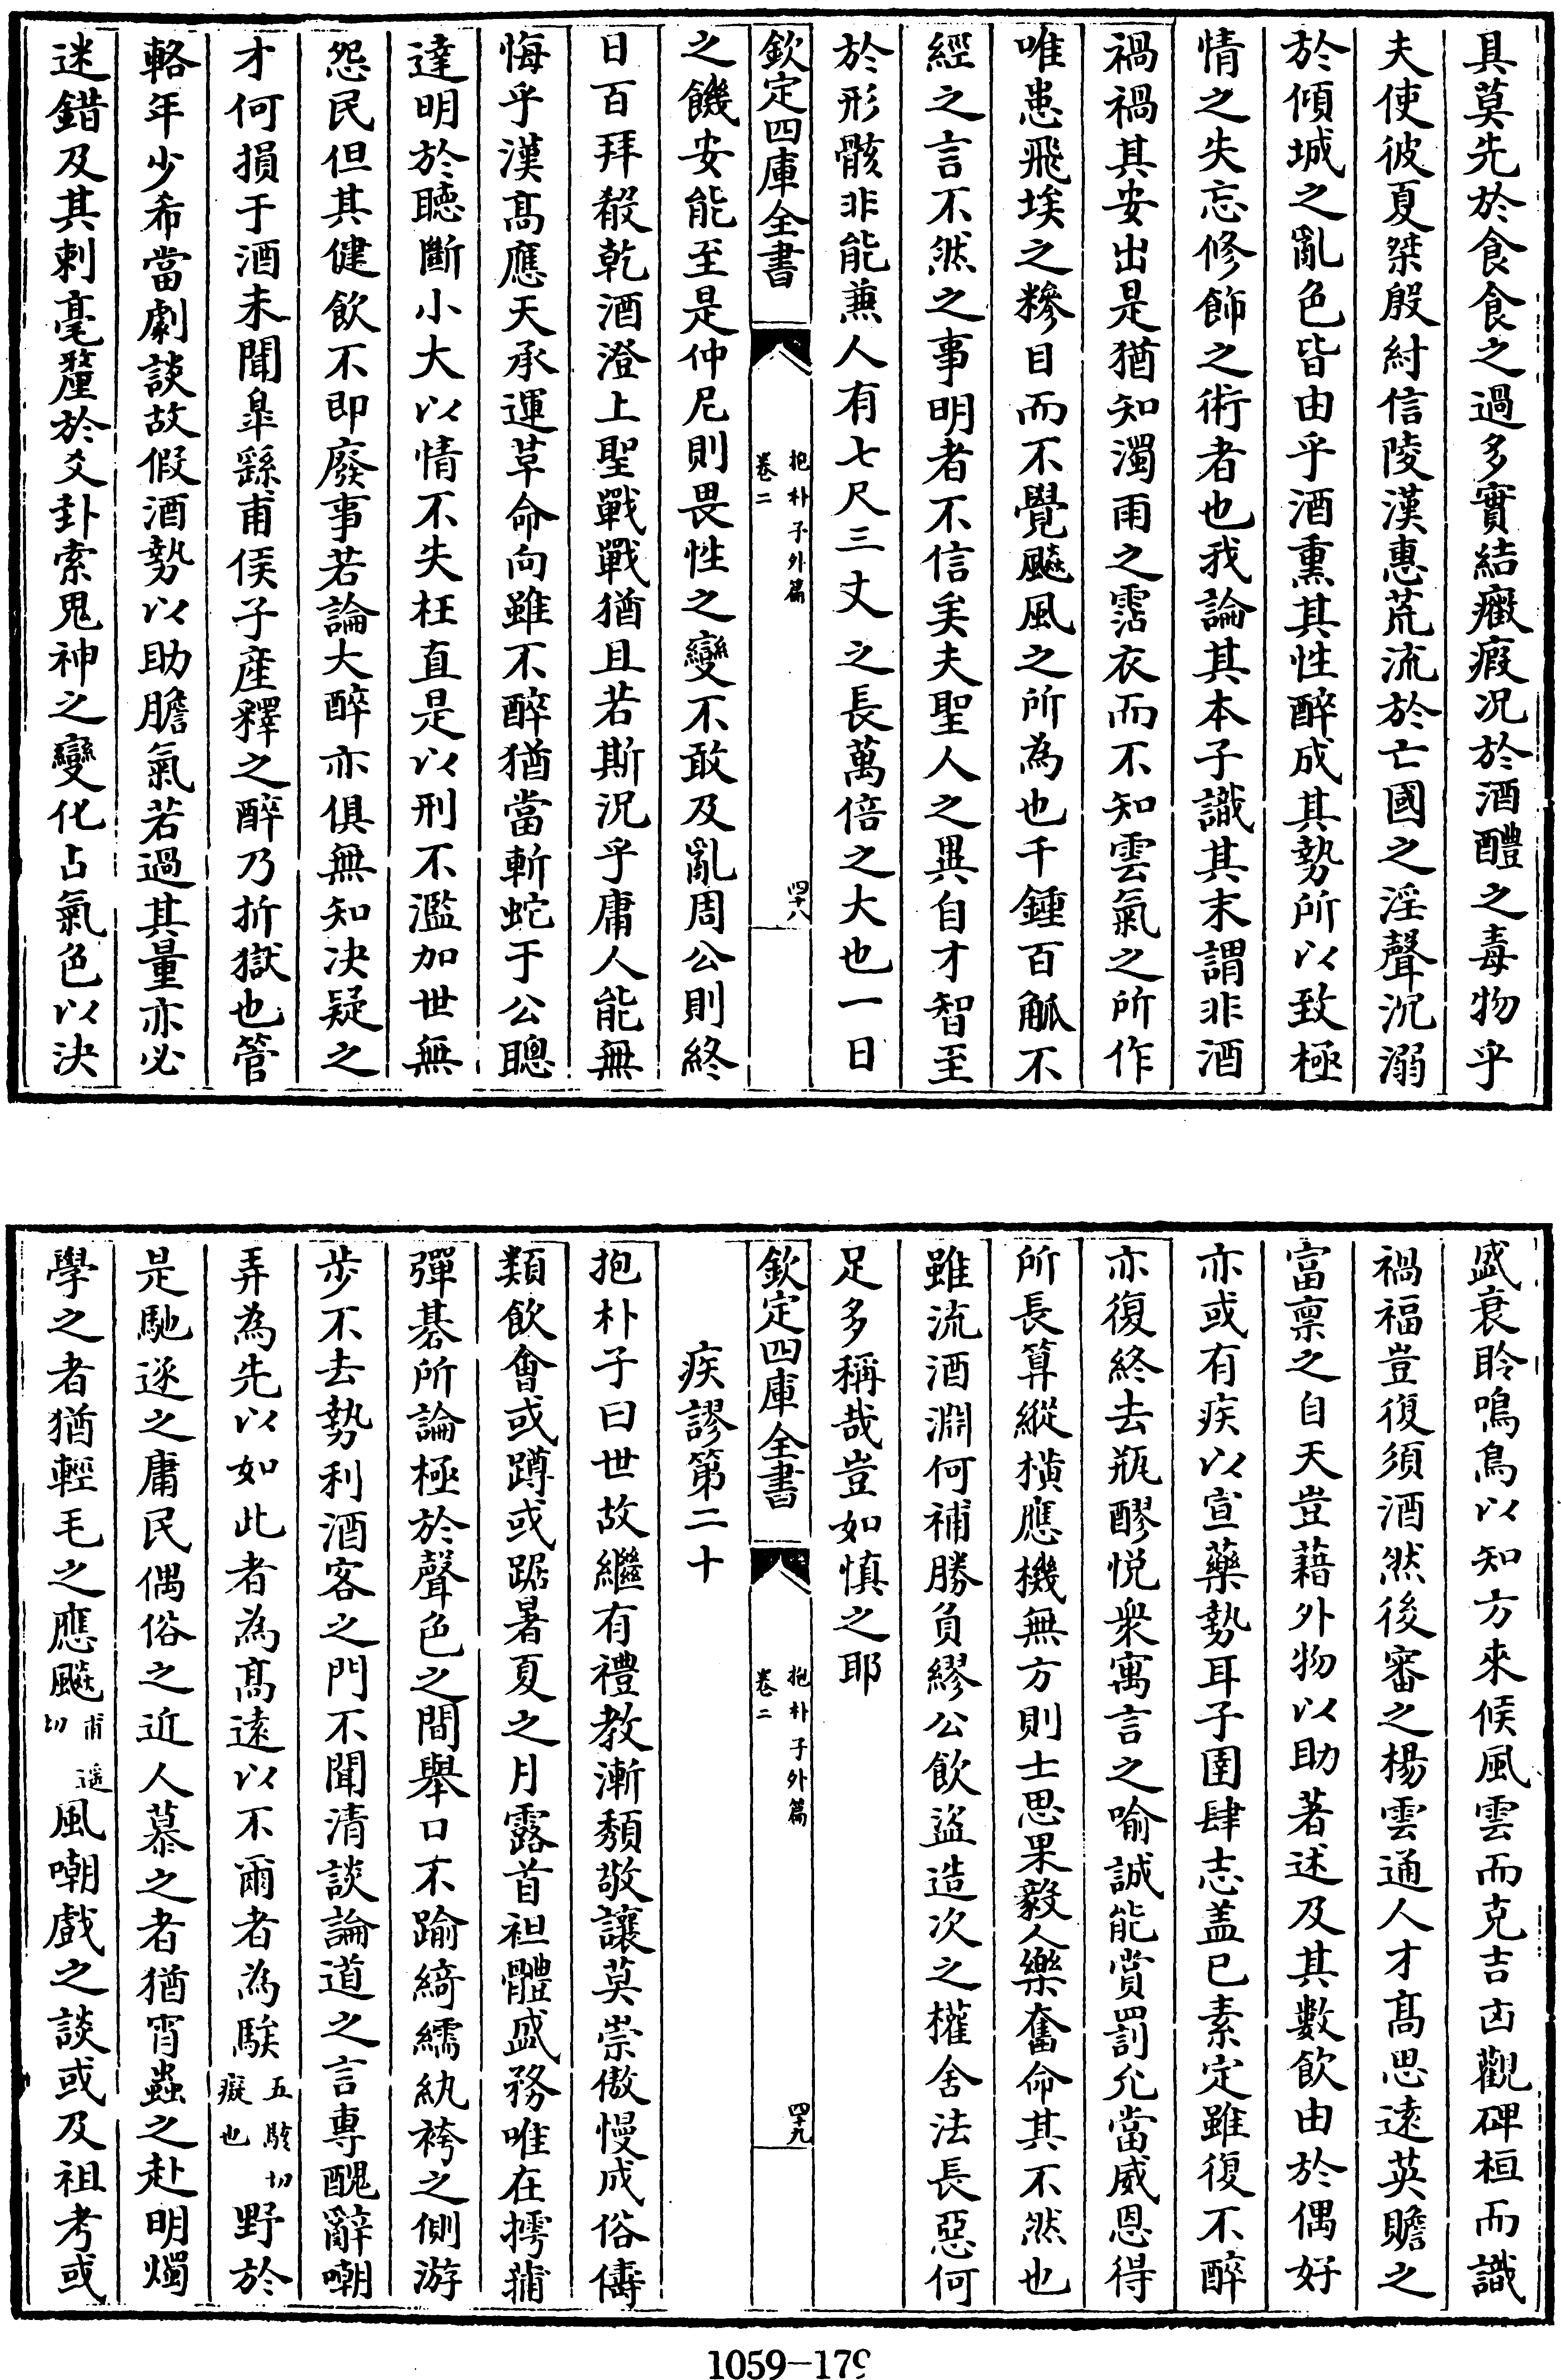 具莫先於食食之過多實結癥瘕况於酒醴之毒物乎
夫使彼夏桀殷紂信陵漢惠荒流於亡國之淫聲沉溺
於傾城之亂色皆由乎酒熏其性醉成其勢所以致極
情之失忘修飾之術者也我論其本子識其末謂非酒
禍禍其安出是猶知濁雨之霑衣而不知雲氣之所作
唯患飛埃之糝目而不覺飈風之所為也千鍾百觚不
經之言不然之事明者不信矣夫聖人之異自才智至
於形骸非能兼人有七尺三丈之長萬倍之大也一日
欽定四庫全書
抱朴子外篇
卷二
四十八
之饑安能至是仲尼則畏性之變不敢及亂周公則終
日百拜殽乾酒澄上聖戰戰猶且若斯況乎庸人能無
悔乎漢髙應天承運革命向雖不醉猶當斬蛇于公聰
達明於聽斷小大以情不失枉直是以刑不濫加世無
怨民但其健飲不即廢事若論大醉亦俱無知决疑之
才何損于酒未聞臯繇甫侯子產釋之醉乃折獄也管
輅年少希當劇談故假酒勢以助膽氣若過其量亦必
迷錯及其刺毫釐於爻卦索鬼神之變化占氣色以決
盛衰聆鳴鳥以知方來候風雲而克吉凶觀碑桓而識
禍福豈復須酒然後審之楊雲通人才髙思遠英贍之
富禀之自天豈藉外物以助著述及其數飲由於偶好
亦或有疾以宣藥勢耳子圉肆志盖已素定雖復不醉
亦復終去瓶醪悅衆寓言之喻誠能賞罰允當威恩得
所長算縱横應機無方則士思果毅人樂奮命其不然也
雖流酒淵何補勝負繆公飲盜造次之權舍法長惡何
足多稱哉豈如慎之耶
欽定四庫全書
抱朴子外篇
卷二
四十九
疾謬第二十
抱朴子曰世故繼有禮教漸頽敬讓莫崇傲慢成俗儔
類飲會或蹲或踞暑夏之月露首袒體盛務唯在摴蒱
彈碁所論極於聲色之間舉口不踰綺繻紈袴之側游
步不去勢利酒客之門不聞清談論道之言專醜辭嘲
弄為先以如此者為髙遠以不爾者為騃五駭切癡也野於
是馳逐之庸民偶俗之近人慕之者猶宵蟲之赴明燭
學之者猶輕毛之應飈甫遥切風嘲戲之談或及祖考或
1059-179